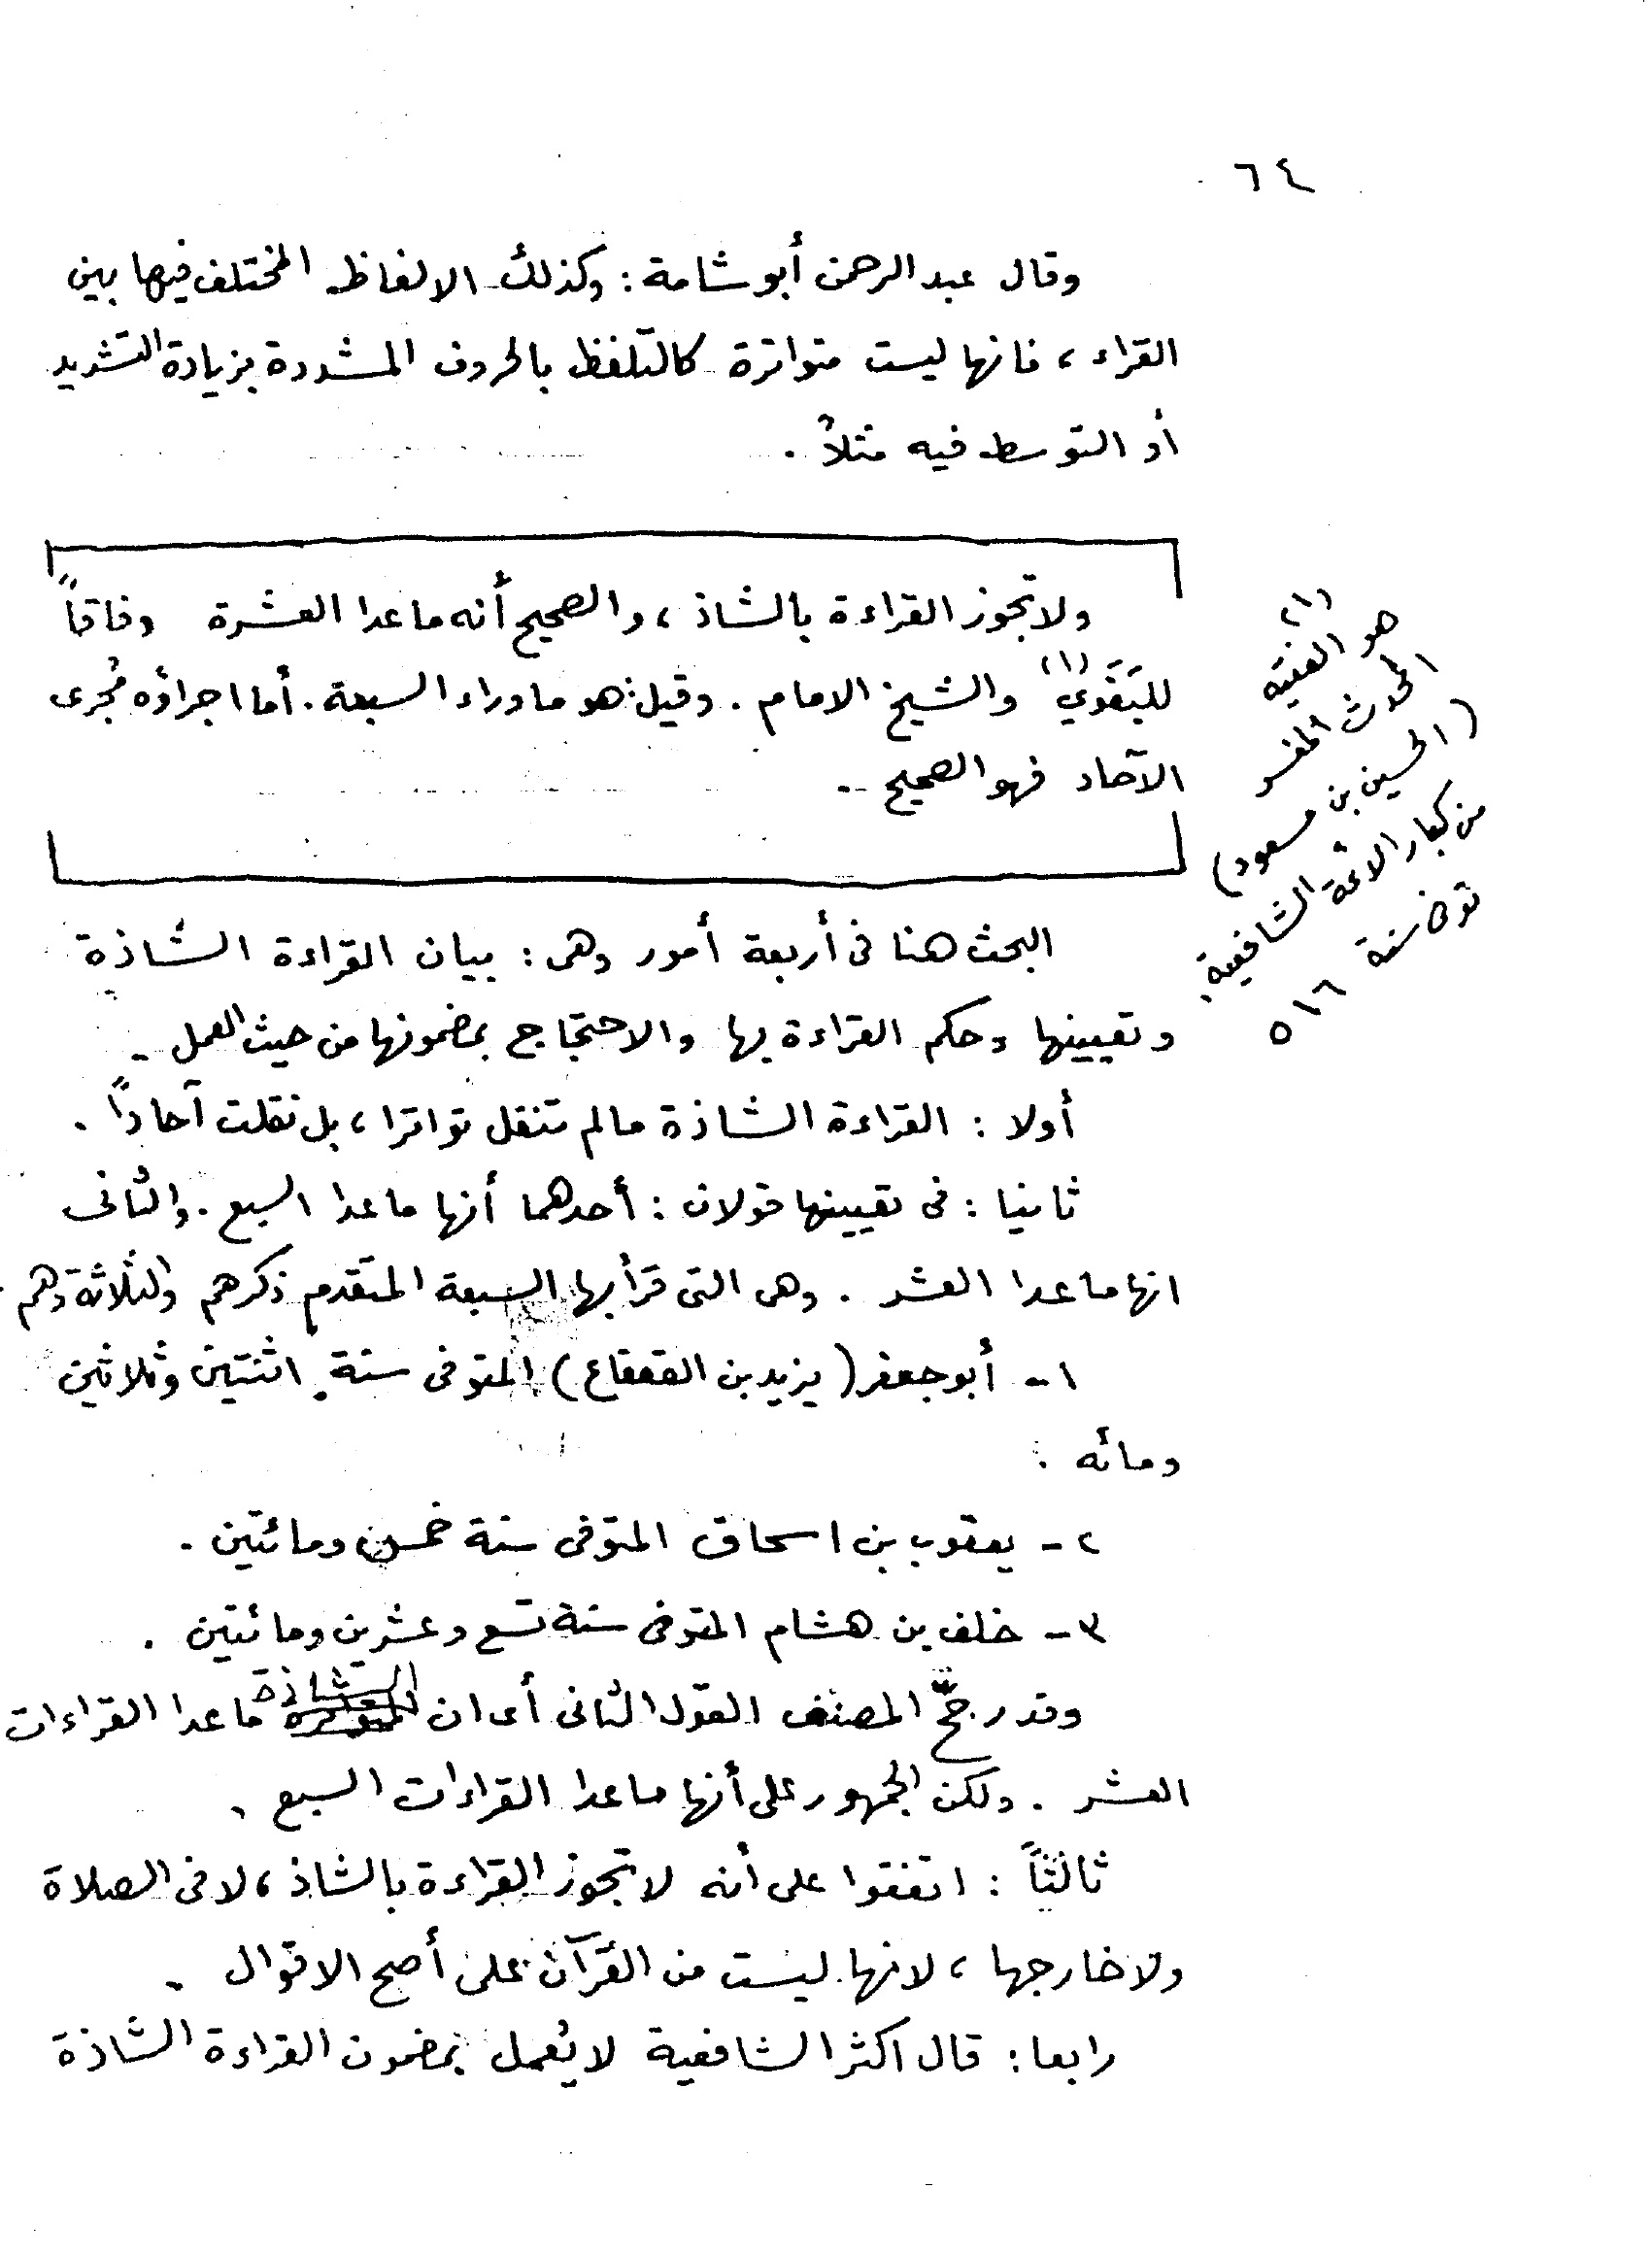 ٦٤
وقال عبدالرحمن أبو شامة : وكذلك الالفاظ المختلف فيها بين
القراء ، فانها ليست متواترة كالتلفظ بالحروف المشددة بزيادة التشديد
أو التوسط فيه مثلاً .
ولا تجوز القراءة بالشاذ ، والصحيح أنه ما عدا العشرة وفاقاً
للبَغَوي (١) والشيخ الامام . وقيل : هو ما وراء السبعة . أما اجراؤه مُجرى
الآحاد فهو الصحيح .
البحث هنا فى أربعة أمور وهى : بيان القراءة الشاذة
وتعيينها وحكم القراءة بها والاحتجاج بمضمونها من حيث العمل .
أولا : القراءة الشاذة مالم تنقل تواترا ، بل نقلت آحاداً .
ثانيا : فى تعيينها قولان : أحدهما أنها ماعدا السبع . والثانى
انها ماعدا العشر . وهى التى قرأ بها السبعة المتقدم ذكرهم والثلاثة وهم .
١ - أبو جعفر ( يزيد بن القعقاع ) المتوفى سنة اثنتين وثلاثين
ومائه .
٢ - يعقوب بن اسحاق المتوفى سنة خمسن ومائتين .
٣ - خلف بن هشام المتوفى سنة تسع وعشرين ومائتين .
وقد رجّح المصنف القول الثانى أى ان الشاذة ماعدا القراءات
العشر . ولكن الجمهور على أنها ماعدا القراءات السبع .
ثالثاً : اتفقوا على أنه لا تجوز القراءة بالشاذ ، لا فى الصلاة
ولا خارجها ، لانها ليست من القرآن على أصح الاقوال .
رابعا : قال اكثر الشافعية لا يُعمل بمضمون القراءة الشاذة
(١)
هو الفقيه
المحدث المفسر
(الحسين بن مسعود)
من كبار الائمة الشافعية.
توفى سنة ٥١٦